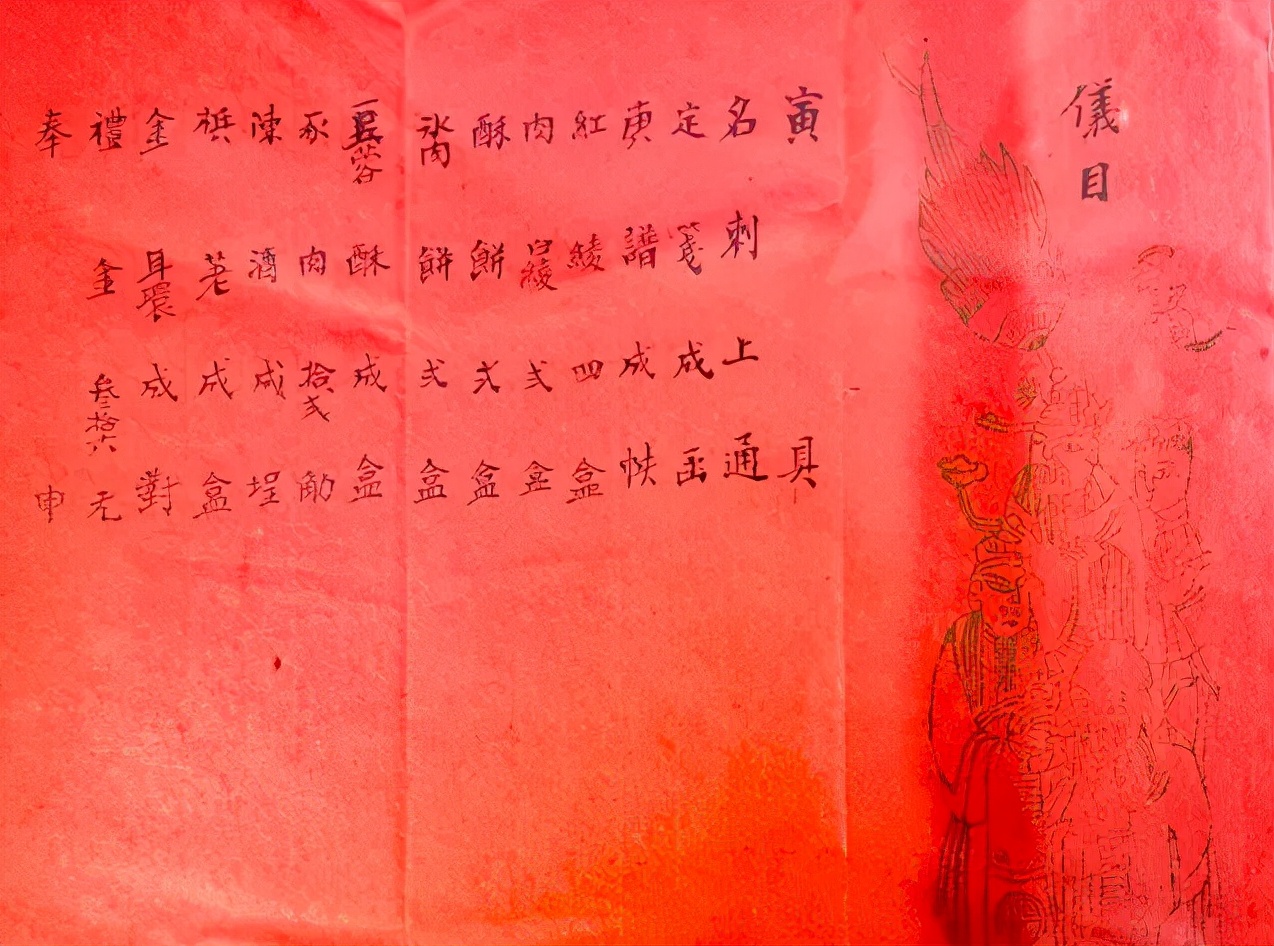 儀目
寅具
名刺上通
定箋成函
庚譜成帙
紅綾四盒
肉白綾弍盒
酥餅弍盒
冰肉餅弍盒
豆蓉酥成盒
豕肉拾弍觔
陳酒成埕
梹荖成盒
金耳環成對
禮金叁拾六元
奉申